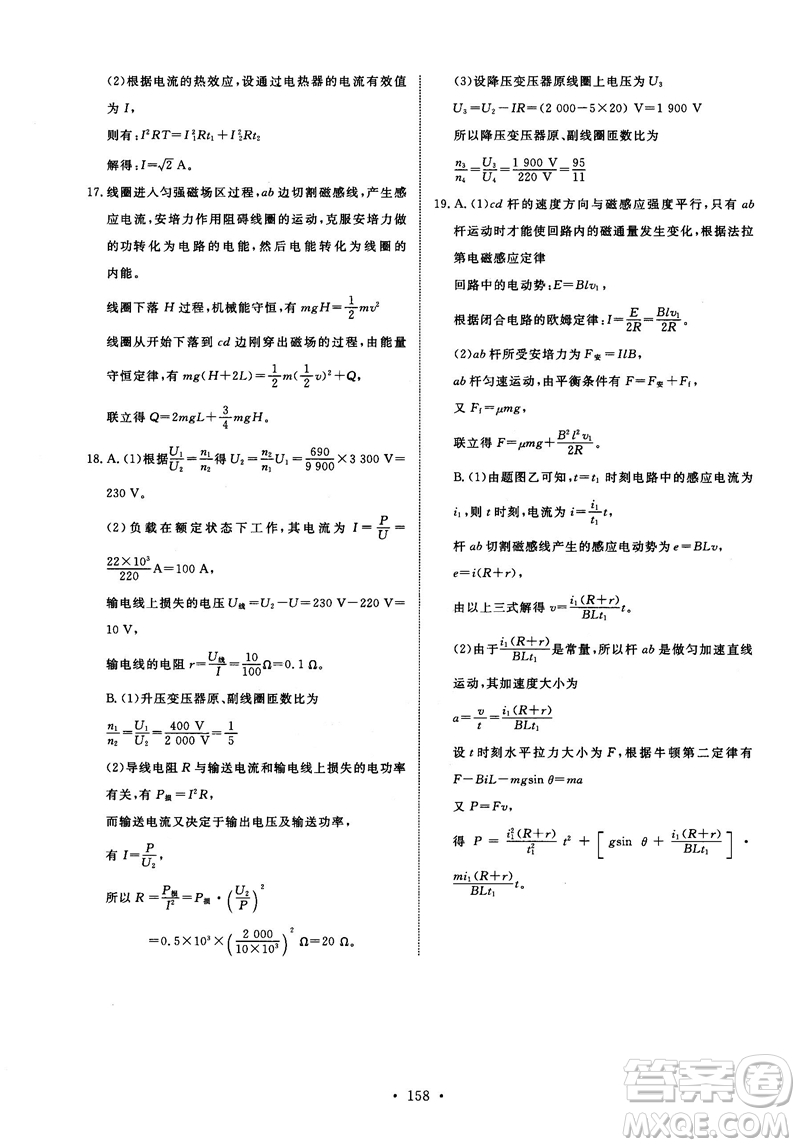 (2)根据电流的热效应，设通过电热器的电流有效值
为 I，
则有：I²RT＝I₁²Rt₁＋I₂²Rt₂
解得：I＝√2 A。
17. 线圈进入匀强磁场区过程，ab 边切割磁感线，产生感
应电流，安培力作用阻碍线圈的运动，克服安培力做
的功转化为电路的电能，然后电能转化为线圈的
内能。
线圈下落 H 过程，机械能守恒，有 mgH＝1/2 mv²
线圈从开始下落到 cd 边刚穿出磁场的过程，由能量
守恒定律，有 mg(H＋2L)＝1/2 m(1/2 v)²＋Q，
联立得 Q＝2mgL＋3/4 mgH。
18. A. (1)根据U₁/U₂＝n₁/n₂得 U₂＝n₂/n₁ U₁＝690/9 900×3 300 V＝
230 V。
(2)负载在额定状态下工作，其电流为 I＝P/U＝
22×10³/220 A＝100 A，
输电线上损失的电压 U线＝U₂－U＝230 V－220 V＝
10 V，
输电线的电阻 r＝U线/I＝10/100 Ω＝0.1 Ω。
B. (1)升压变压器原、副线圈匝数比为
n₁/n₂＝U₁/U₂＝400 V/2 000 V＝1/5
(2)导线电阻 R 与输送电流和输电线上损失的电功率
有关，有 P损＝I²R，
而输送电流又决定于输出电压及输送功率，
有 I＝P/U₂，
所以 R＝P损/I²＝P损·(U₂/P)²
＝0.5×10³×(2 000/10×10³)² Ω＝20 Ω。
(3)设降压变压器原线圈上电压为 U₃
U₃＝U₂－IR＝(2 000－5×20) V＝1 900 V
所以降压变压器原、副线圈匝数比为
n₃/n₄＝U₃/U₄＝1 900 V/220 V＝95/11
19. A. (1)cd 杆的速度方向与磁感应强度平行，只有 ab
杆运动时才能使回路内的磁通量发生变化，根据法拉
第电磁感应定律
回路中的电动势：E＝Blv₁，
根据闭合电路的欧姆定律：I＝E/2R＝Blv₁/2R。
(2)ab 杆所受安培力为 F安＝IlB，
ab 杆匀速运动，由平衡条件有 F＝F安＋Ff，
又 Ff＝μmg，
联立得 F＝μmg＋B²l²v₁/2R。
B. (1)由题图乙可知，t＝t₁ 时刻电路中的感应电流为
i₁，则 t 时刻，电流为 i＝i₁/t₁ t，
杆 ab 切割磁感线产生的感应电动势为 e＝BLv，
e＝i(R＋r)，
由以上三式解得 v＝i₁(R＋r)/BLt₁ t。
(2)由于i₁(R＋r)/BLt₁是常量，所以杆 ab 是做匀加速直线
运动，其加速度大小为
a＝v/t＝i₁(R＋r)/BLt₁
设 t 时刻水平拉力大小为 F，根据牛顿第二定律有
F－BiL－mgsin θ＝ma
又 P＝Fv，
得 P＝i₁²(R＋r)/t₁² t²＋[gsin θ＋i₁(R＋r)/BLt₁]·
mi₁(R＋r)/BLt₁ t。
· 158 ·
答案圈
MXQE.COM